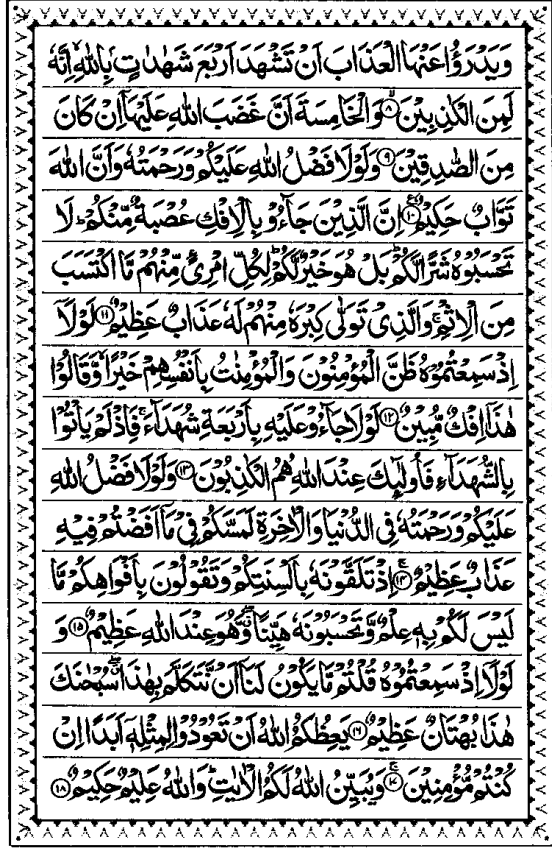 وَيَدْرَؤُا عَنْهَا الْعَذَابَ اَنْ تَشْهَدَ اَرْبَعَ شَهٰدٰتٍۭ بِاللّٰهِ ۙ اِنَّهٗ
لَمِنَ الْكٰذِبِيْنَ ۙ﴿۸﴾ وَالْخَامِسَةَ اَنَّ غَضَبَ اللّٰهِ عَلَيْهَاۤ اِنْ كَانَ
مِنَ الصّٰدِقِيْنَ ﴿۹﴾ وَلَوْلَا فَضْلُ اللّٰهِ عَلَيْكُمْ وَرَحْمَتُهٗ وَاَنَّ اللّٰهَ
تَوَّابٌ حَكِيْمٌ ﴿۱۰﴾ اِنَّ الَّذِيْنَ جَآءُوْ بِالْاِفْكِ عُصْبَةٌ مِّنْكُمْ ؕ لَا
تَحْسَبُوْهُ شَرًّا لَّكُمْ ؕ بَلْ هُوَ خَيْرٌ لَّكُمْ ؕ لِكُلِّ امْرِئٍ مِّنْهُمْ مَّا اكْتَسَبَ
مِنَ الْاِثْمِ ۚ وَالَّذِيْ تَوَلّٰى كِبْرَهٗ مِنْهُمْ لَهٗ عَذَابٌ عَظِيْمٌ ﴿۱۱﴾ لَوْلَاۤ
اِذْ سَمِعْتُمُوْهُ ظَنَّ الْمُؤْمِنُوْنَ وَالْمُؤْمِنٰتُ بِاَنْفُسِهِمْ خَيْرًا ۙ وَّقَالُوْا
هٰذَاۤ اِفْكٌ مُّبِيْنٌ ﴿۱۲﴾ لَوْلَا جَآءُوْ عَلَيْهِ بِاَرْبَعَةِ شُهَدَآءَ ۚ فَاِذْ لَمْ يَاْتُوْا
بِالشُّهَدَآءِ فَاُولٰٓئِكَ عِنْدَ اللّٰهِ هُمُ الْكٰذِبُوْنَ ﴿۱۳﴾ وَلَوْلَا فَضْلُ اللّٰهِ
عَلَيْكُمْ وَرَحْمَتُهٗ فِي الدُّنْيَا وَالْاٰخِرَةِ لَمَسَّكُمْ فِيْ مَاۤ اَفَضْتُمْ فِيْهِ
عَذَابٌ عَظِيْمٌ ۚ﴿۱۴﴾ اِذْ تَلَقَّوْنَهٗ بِاَلْسِنَتِكُمْ وَتَقُوْلُوْنَ بِاَفْوَاهِكُمْ مَّا
لَيْسَ لَكُمْ بِهٖ عِلْمٌ وَّتَحْسَبُوْنَهٗ هَيِّنًا ۖ وَّهُوَ عِنْدَ اللّٰهِ عَظِيْمٌ ﴿۱۵﴾ وَ
لَوْلَاۤ اِذْ سَمِعْتُمُوْهُ قُلْتُمْ مَّا يَكُوْنُ لَنَاۤ اَنْ نَّتَكَلَّمَ بِهٰذَا ۖ سُبْحٰنَكَ
هٰذَا بُهْتَانٌ عَظِيْمٌ ﴿۱۶﴾ يَعِظُكُمُ اللّٰهُ اَنْ تَعُوْدُوْا لِمِثْلِهٖۤ اَبَدًا اِنْ
كُنْتُمْ مُّؤْمِنِيْنَ ۚ﴿۱۷﴾ وَيُبَيِّنُ اللّٰهُ لَكُمُ الْاٰيٰتِ ؕ وَاللّٰهُ عَلِيْمٌ حَكِيْمٌ ﴿۱۸﴾